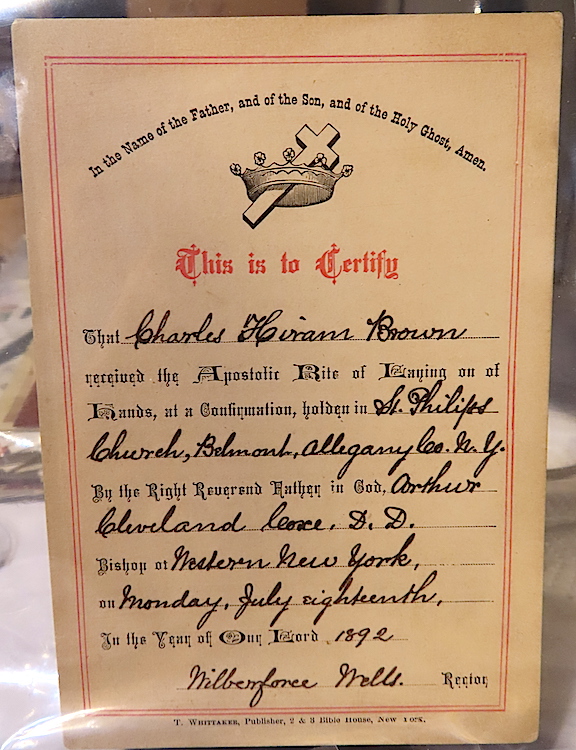 In the Name of the Father, and of the Son, and of the Holy Ghost, Amen.
This is to Certify
That Charles Hiram Brown
received the Apostolic Rite of Laying on of
Hands, at a Confirmation, holden in St. Philips
Church, Belmont, Allegany Co. N. Y.
By the Right Reverend Father in God, Arthur
Cleveland Coxe, D. D.
Bishop of Western New York,
on Monday, July eighteenth,
In the Year of Our Lord 1892
Wilberforce Wells. Rector
T. Whittaker, Publisher, 2 & 3 Bible House, New York.